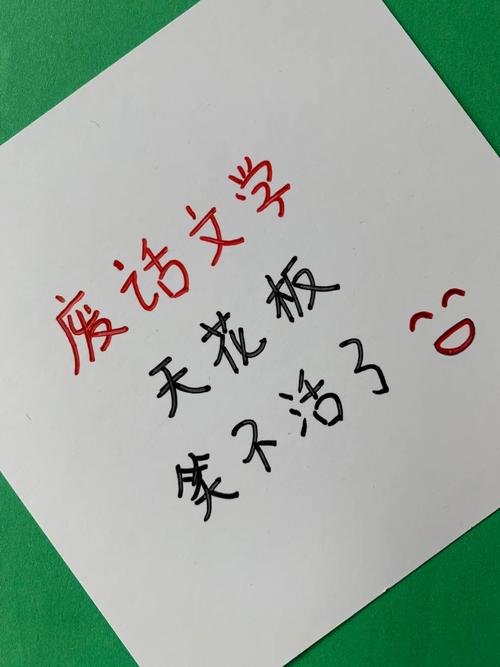 废话文学
天花板
笑不活了